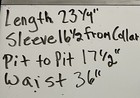 Length 23 1/4"
Sleeve 16 1/2 from Collar
Pit to Pit 17 1/2"
Waist 36"